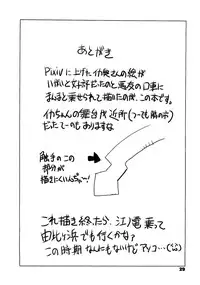 あとがき
Pixivに上げたイカ娘さんの絵が
いがいと好評だったのと悪友の口車に
まんまと乗せられて描いたのが、この本です。
イカちゃんの舞台が近所(つっても隣の市)
だったてーのもありますな
触手のこの
部分が
描きにくいんじゃー!
これ描き終ったら、江ノ電乗って
由比ヶ浜でも行くかな?
この時期なんにもないけどアソコ…
29